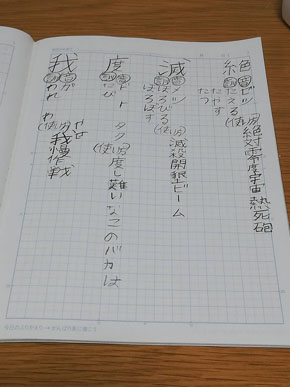 絶
音 ゼツ
訓 たえる
たやす
たつ
絶対零度宇宙熱死砲
滅
音 メツ
訓 ほろびる
ほろぼす
滅殺開狠ビーム
度
音 ド ト タク
訓 たび
度し難いなこのバカは
我
音 ガ
訓 われ わ
やせ我慢作戦